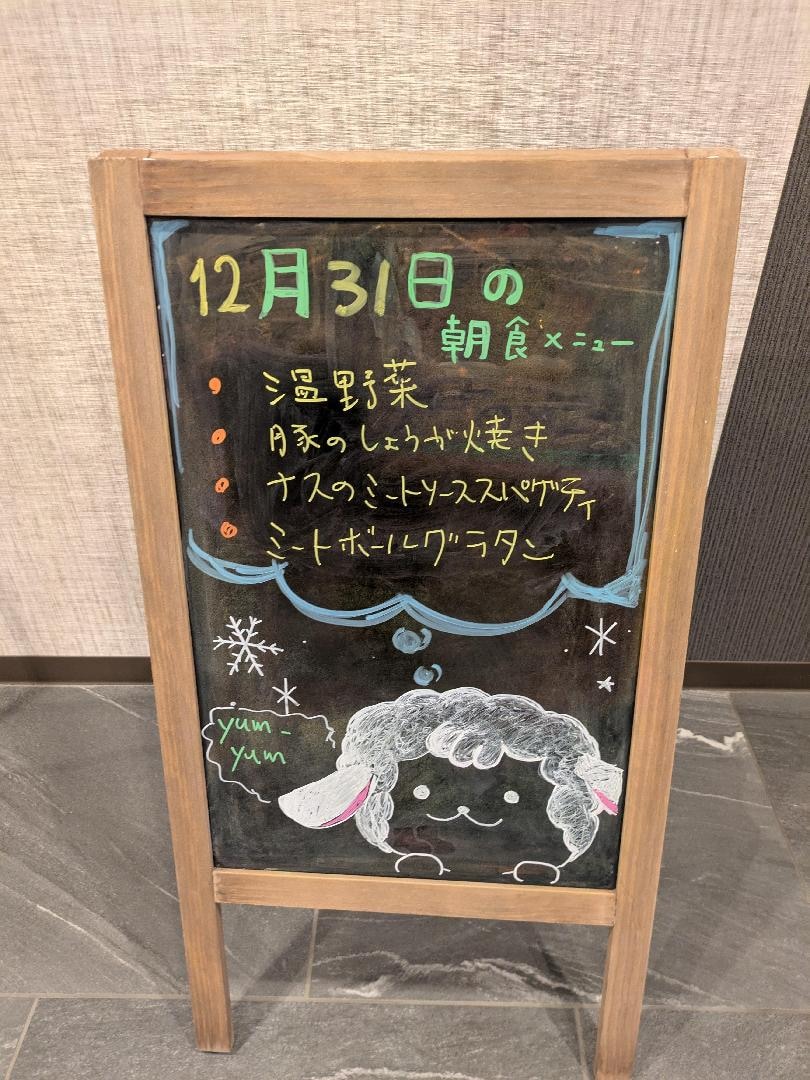 12月31日の
朝食メニュー
温野菜
豚のしょうが焼き
ナスのミートソーススパゲティ
ミートボールグラタン
yum-
yum